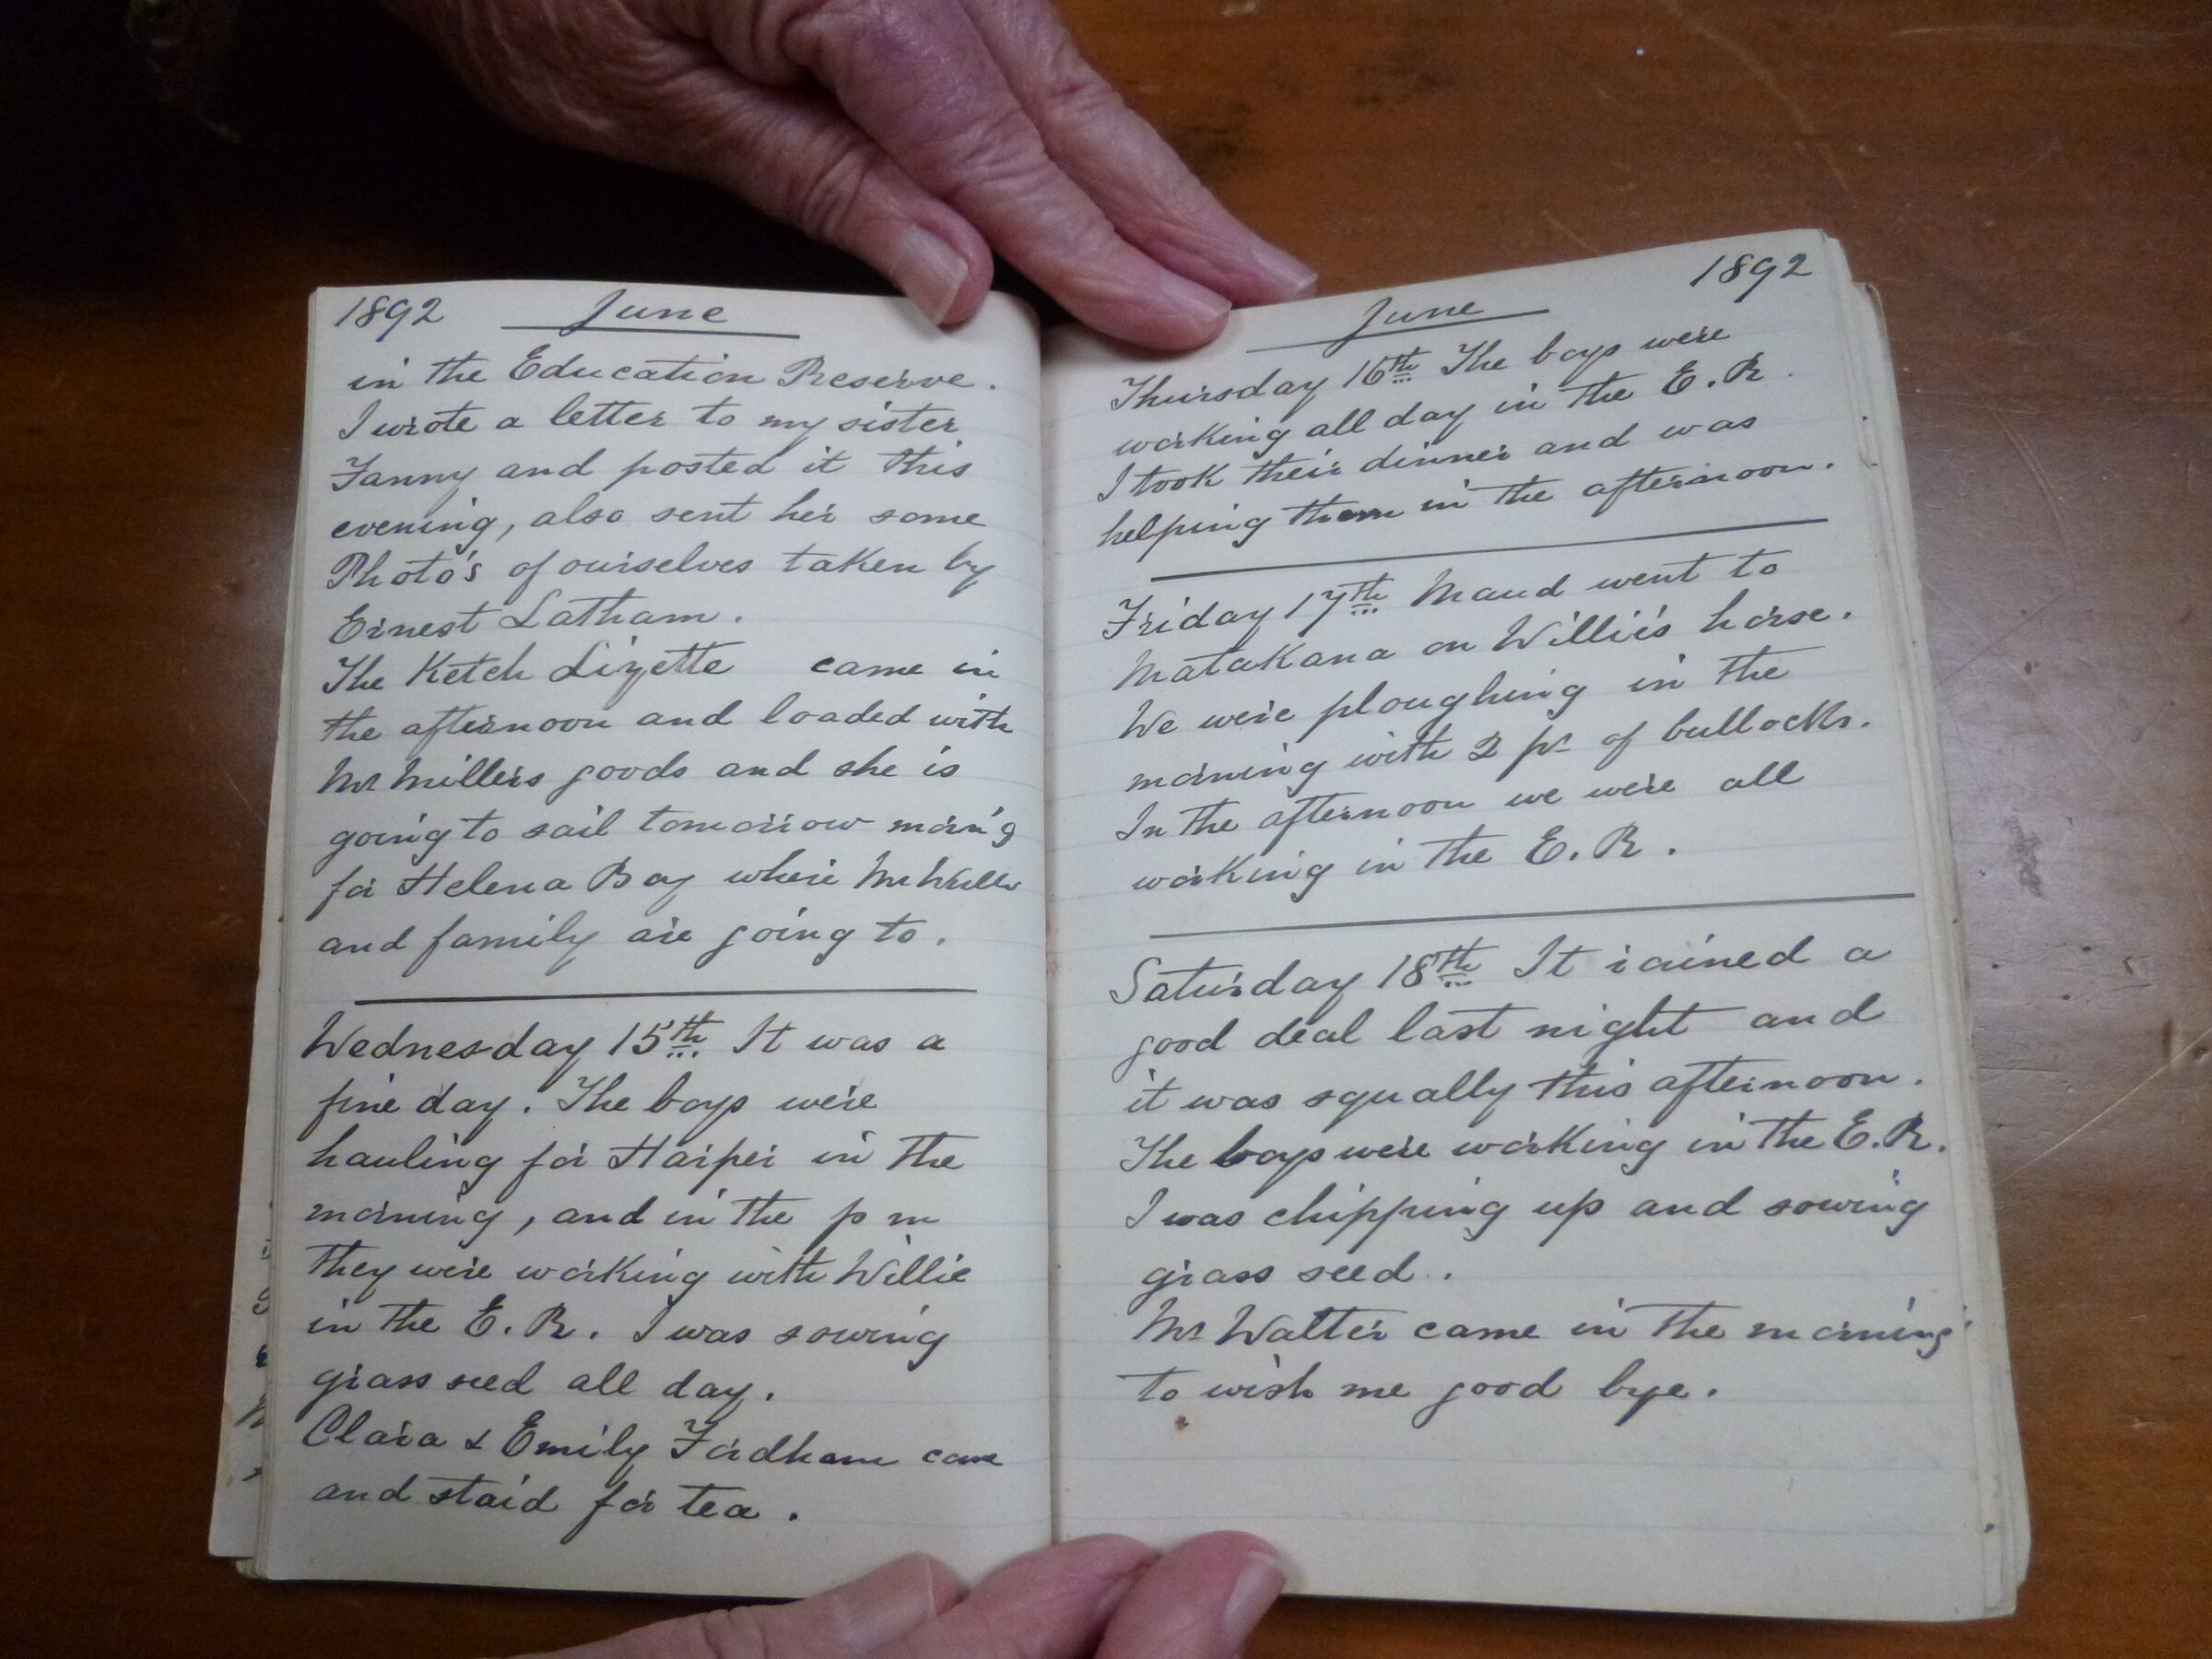 1892 June
in the Education Reserve.
I wrote a letter to my sister
Fanny and posted it this
evening, also sent her some
Photo's of ourselves taken by
Ernest Latham.
The Ketch Lizette came in
the afternoon and loaded with
Mr Millers goods and she is
going to sail tomorrow morn'g
for Helena Bay where Mr Miller
and family are going to.
Wednesday 15th It was a
fine day. The boys were
hauling for Harper in the
morning, and in the p m
they were working with Willie
in the E. R. I was sowing
grass seed all day.
Clara & Emily Fordham came
and staid for tea.
June 1892
Thursday 16th The boys were
working all day in the E. R.
I took their dinner and was
helping them in the afternoon.
Friday 17th Maud went to
Matakana on Willie's horse.
We were ploughing in the
morning with 2 pr of bullocks.
In the afternoon we were all
working in the E. R.
Saturday 18th It rained a
good deal last night and
it was squally this afternoon.
The boys were working in the E. R.
I was chipping up and sowing
grass seed.
Mr Walter came in the morning
to wish me good bye.